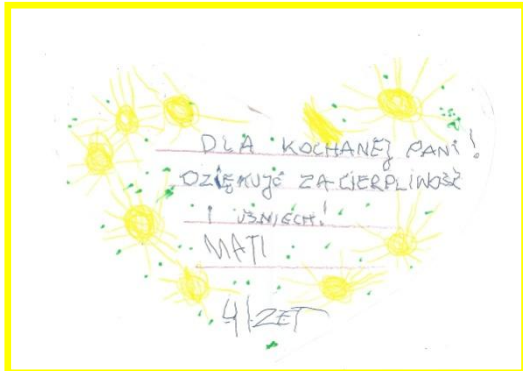 DLA KOCHANEJ PANI!
DZIĘKUJĘ ZA CIERPLIWOŚĆ
I UŚMIECH!
MATI
4|ZET